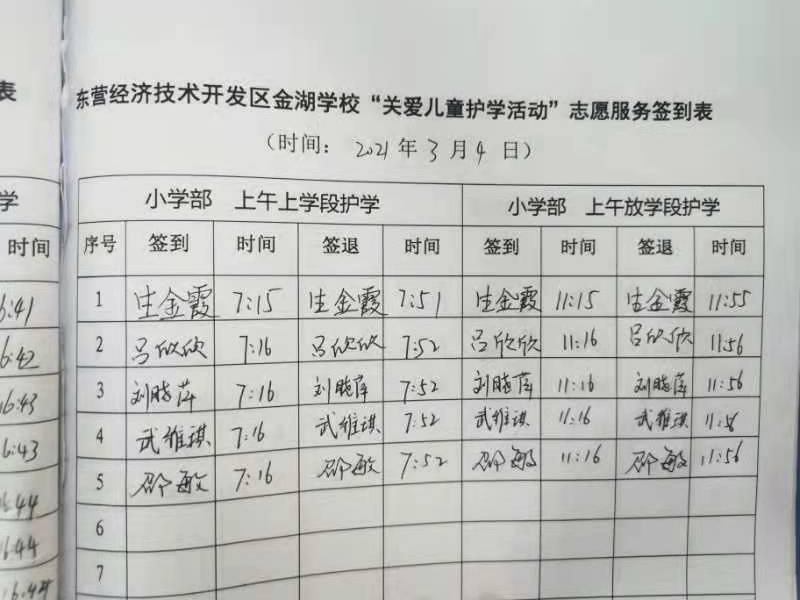 表
学
时间
6:41
6:42
16:43
6:43
16:44
16:44
16:44
东营经济技术开发区金湖学校“关爱儿童护学活动”志愿服务签到表
（时间： 2021 年 3 月 4 日）
小学部 上午上学段护学 小学部 上午放学段护学
序号 签到 时间 签退 时间 签到 时间 签退 时间
1 生金霞 7:15 生金霞 7:51 生金霞 11:15 生金霞 11:55
2 吕欣欣 7:16 吕欣欣 7:52 吕欣欣 11:16 吕欣欣 11:56
3 刘晓萍 7:16 刘晓萍 7:52 刘晓萍 11:16 刘晓萍 11:56
4 武维琪 7:16 武维琪 7:52 武维琪 11:16 武维琪 11:56
5 邵敏 7:16 邵敏 7:52 邵敏 11:16 邵敏 11:56
6
7